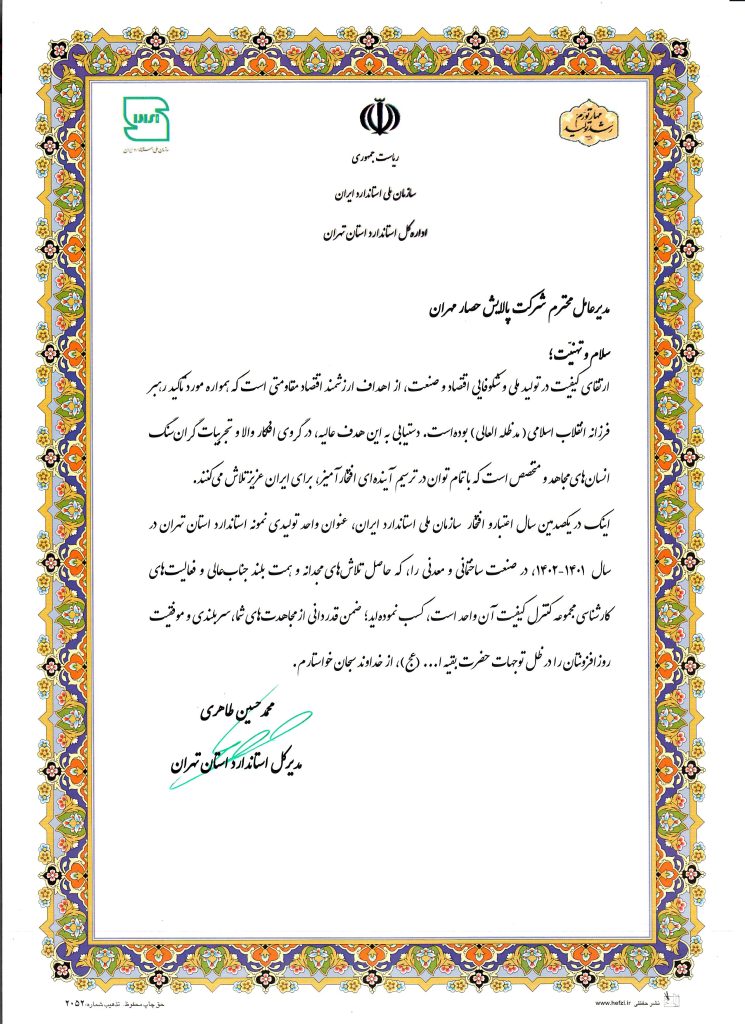 مهار تورم
رشد تولید
ریاست جمهوری
سازمان ملی استاندارد ایران
اداره کل استاندارد استان تهران
سازمان ملی استاندارد ایران
مدیرعامل محترم شرکت پالایش حصار مهران
سلام و تهنیت؛
ارتقای کیفیت در تولید ملی و شکوفایی اقتصاد و صنعت، از اهداف ارزشمند اقتصاد مقاومتی است که همواره مورد تأکید رهبر
فرزانه انقلاب اسلامی (مدظله العالی) بوده‌است. دستیابی به این هدف عالیه، در گروی افکار والا و تجربیات گران‌سنگ
انسان‌های مجاهد و متخصص است که با تمام توان در ترسیم آینده‌ای افتخارآمیز، برای ایران عزیز تلاش می‌کنند.
اینک در یکصدمین سال اعتبار و افتخار سازمان ملی استاندارد ایران، عنوان واحد تولیدی نمونه استاندارد استان تهران در
سال ۱۴۰۱-۱۴۰۲، در صنعت ساختمانی و معدنی را، که حاصل تلاش‌های مجدانه و همت بلند جناب‌عالی و فعالیت‌های
کارشناسی مجموعه کنترل کیفیت آن واحد است، کسب نموده‌اید؛ ضمن قدردانی از مجاهدت‌های شما، سربلندی و موفقیت
روزافزونتان را در ظل توجهات حضرت بقیه ا... (عج)، از خداوند سبحان خواستارم.
محمدحسین طاهری
مدیرکل استاندارد استان تهران
نشر حفظی www.hefzi.ir
حق چاپ محفوظ. تذهیب شماره: ۲۰۵۲